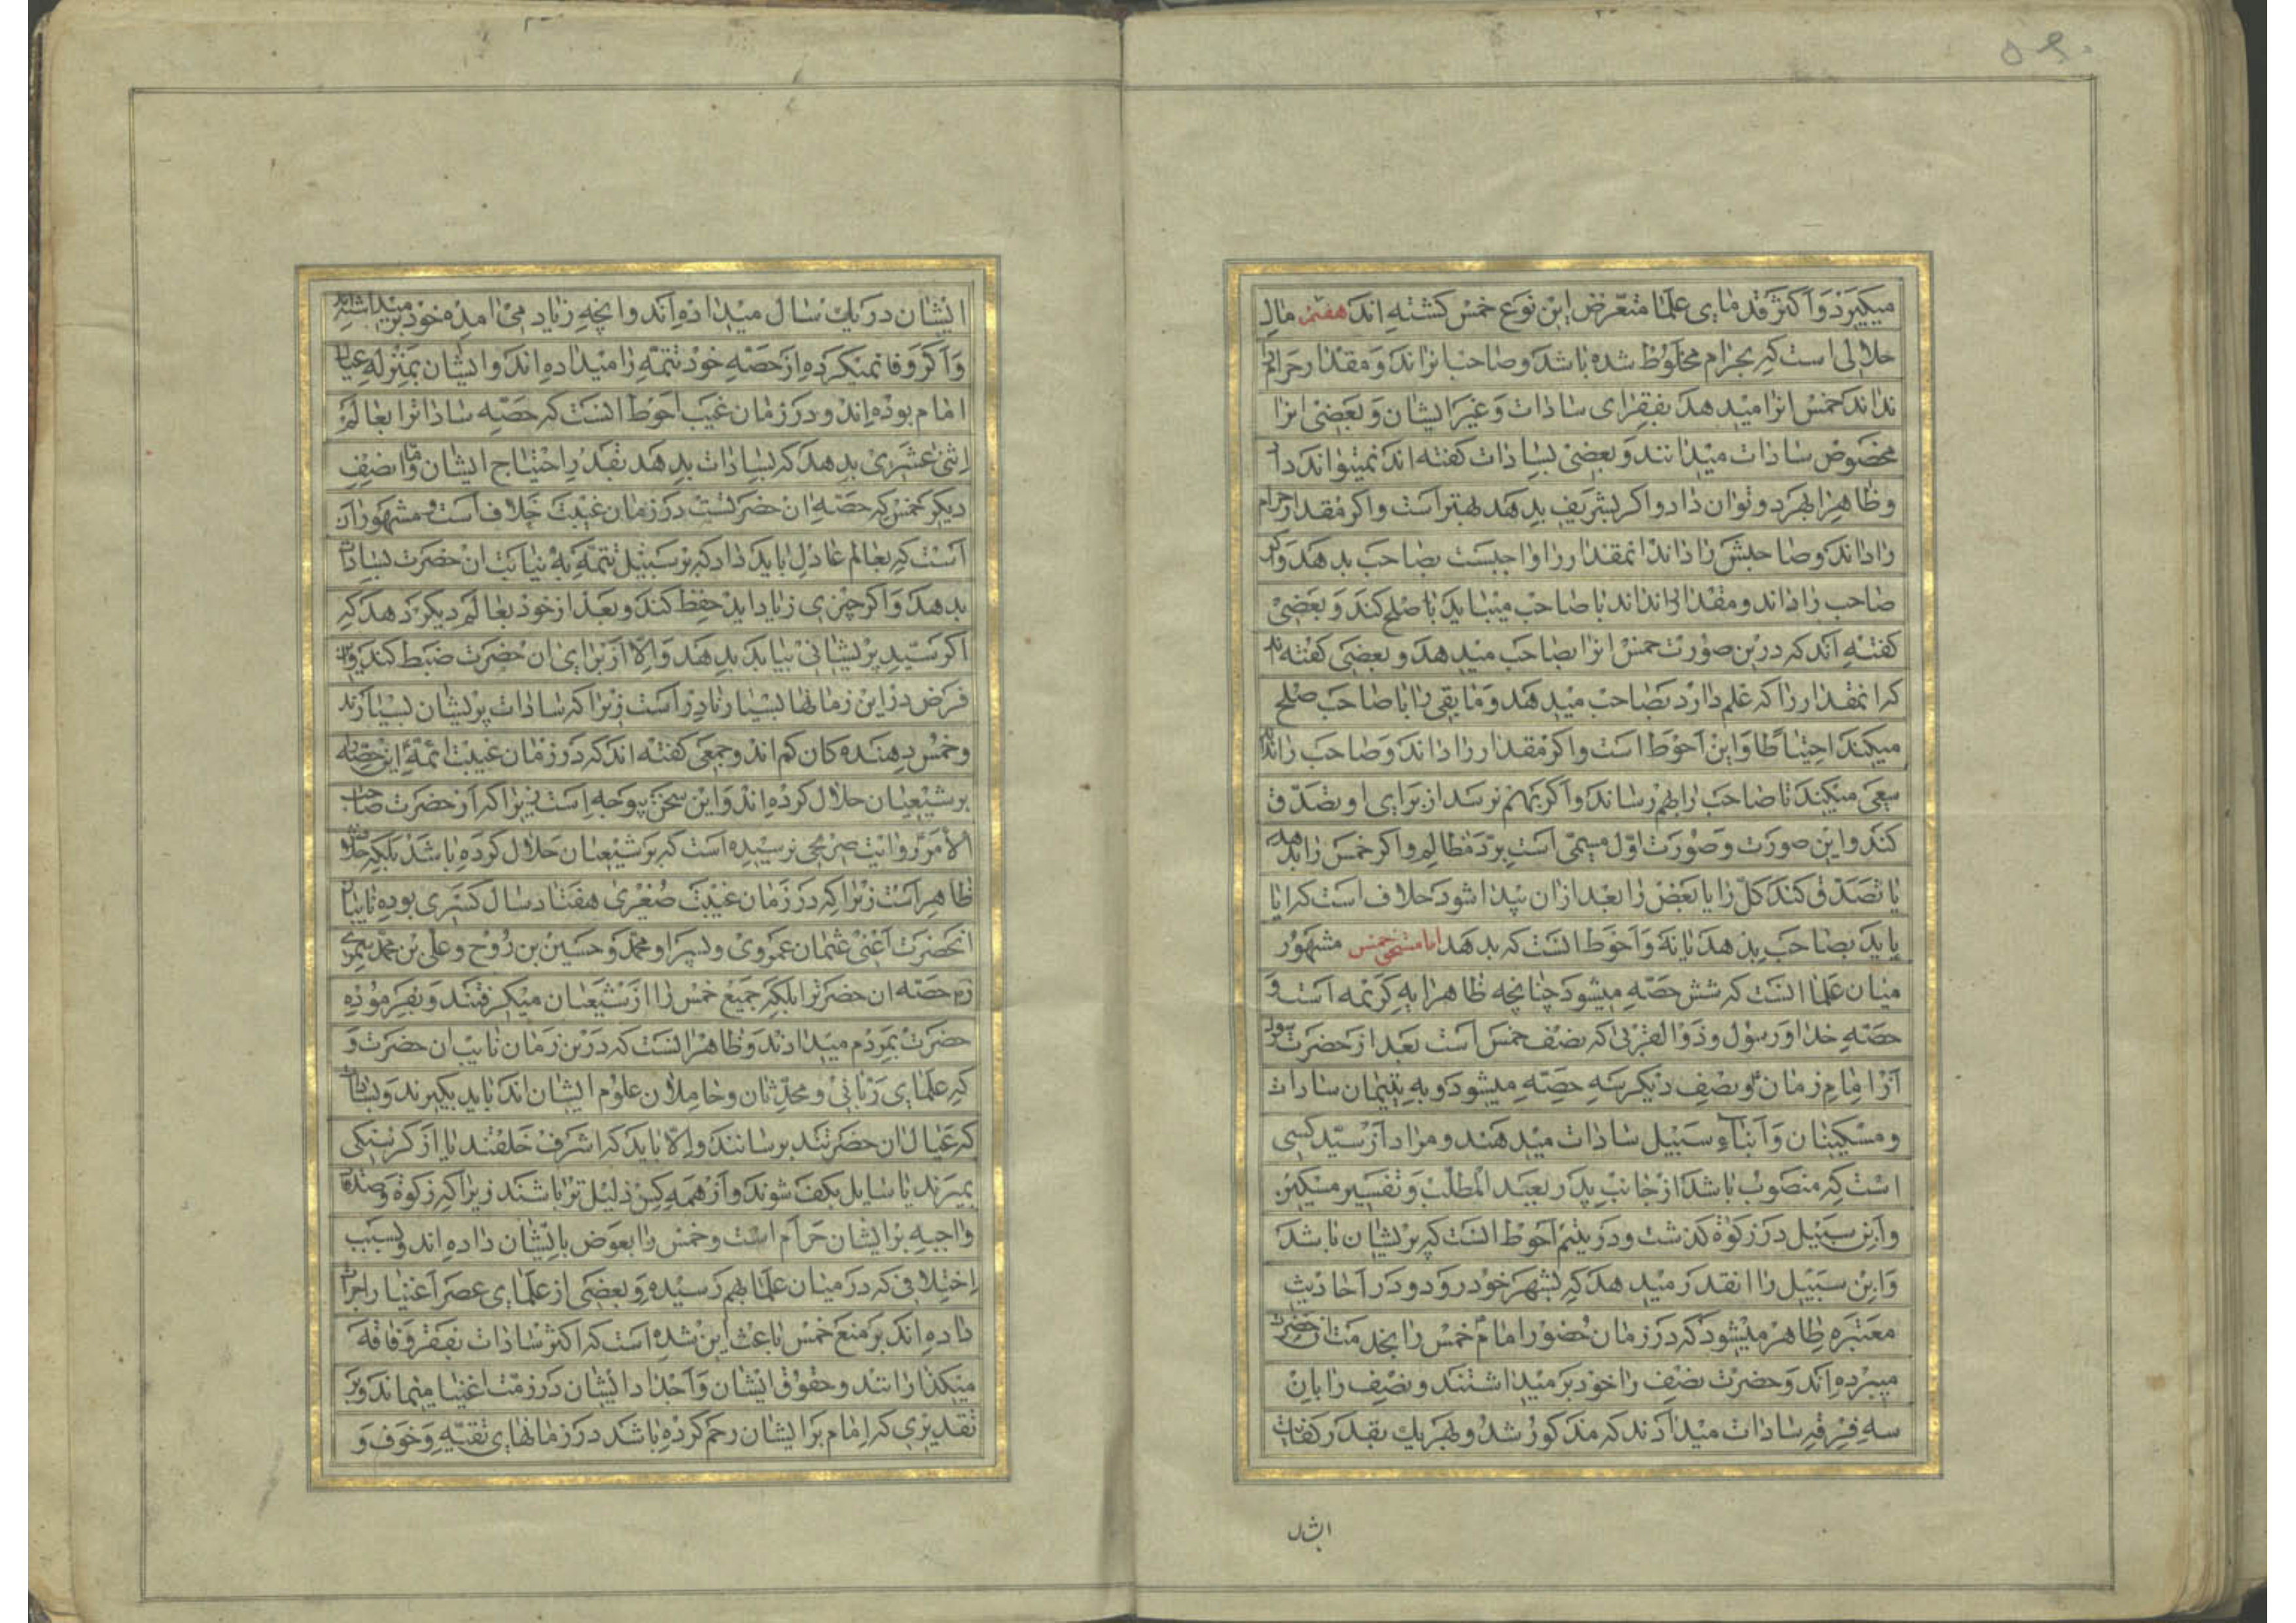 میکیرند و اکثر قدمای علما متعرض این نوع خمس نکشته اند هفتم مال
حلالی است که بحرام مخلوط شده باشد و صاحب انرا نداند و مقدار حرام را
نداند خمس انرا میدهد بفقرای سادات و غیر ایشان و بعضی انرا
مخصوص سادات میدانند و بعضی بسادات کفته اند نمیتواند داد
و ظاهرا بهر دو توان داد و اکر بشریف بدهد بهتر است و اکر مقدار حرام
را داند و صاحبش را داند انمقدار را واجبست بصاحب بدهد و اکر
صاحب را داند و مقدار را نداند با صاحب میباید با صلح کند و بعضی
کفته اند که درین صورت خمس انرا بصاحب میدهد و بعضی کفته اند
که انمقدار را که علم دارد بصاحب میدهد و مابقی را با صاحب صلح
میکند احتیاطا و این احوط است و اکر مقدار را داند و صاحب را نداند
سعی میکند تا صاحب را بهم رساند و اکر بهم نرسد از برای او تصدق
کند و این صورت و صورت اول مسمی است برد مظالم و اکر خمس را بدهد
یا تصدق کند کل را یا بعض را بعد از ان پیدا شود خلاف است که ایا
باید بصاحب بدهد یا نه و احوط انست که بدهد اما مستحق خمس مشهور
میان علما انست که شش حصه میشود چنانچه ظاهر ایه کریمه است و
حصه خدا و رسول و ذوالقربی که نصف خمس است بعد از حضرت رسول
از امام زمان و نصف دیکر سه حصه میشود و به یتیمان سادات
و مسکینان و ابناء سبیل سادات میدهند و مراد از سید کسی
است که منصوب باشد از جانب پدر بعبد المطلب و تفسیر مسکین
و ابن سبیل در زکوة کذشت و در یتیم احوط انست که پریشان باشد
و ابن سبیل را انقدر میدهد که بشهر خود رود و در احادیث
معتبره ظاهر میشود که در زمان حضور امام خمس را بخدمت انحضرت
میبرده اند و حضرت نصف را خود بر میداشتند و نصف را بان
سه فرقه سادات میدادند که مذکور شد و بهر یك بقدر کفاف
ایشان
ایشان در یك سال میداده اند و انچه زیاد می امده خود بر میداشته اند
و اکر وفا نمیکرده از حصه خود تتمه را میداده اند و ایشان بمنزله عیال
امام بوده اند و در زمان غیبت احوط انست که حصه سادات را بعالم
اثنی عشری بدهد که بسادات بدهد بقدر احتیاج ایشان و اما نصف
دیکر خمس که حصه ان حضرتست در زمان غیبت خلاف است و مشهور ان
است که بعالم عادل باید داد که بر سبیل تتمه به نیابت ان حضرت بسادات
بدهد و اکر چیزی زیاد اید حفظ کند و بعد از خود بعالم دیکر دهد که
اکر سید پریشانی بیابد بدهد و الا از برای ان حضرت ضبط کند و این
فرض در این زمانها بسیار نادر است زیرا که سادات پریشان بسیارند
و خمس دهنده کان کم اند و جمعی کفته اند که در زمان غیبت ائمه این حصه را
بر شیعیان حلال کرده اند و این سخن بیوجه است زیرا که از حضرت صاحب
الامر روایت صریحی نرسیده است که بر شیعیان حلال کرده باشد بلکه خلاف
ظاهر است زیرا که در زمان غیبت صغری هفتاد سال کسری بوده نایبان
انحضرت اعنی عثمان عمروی و پسر او محمد و حسین بن روح و علی بن محمد سیمری
زر حصه ان حضرترا بلکه جمیع خمس را از شیعیان میکرفتند و بفرموده
حضرت بمردم میدادند و ظاهر انست که درین زمان نایب ان حضرت و
که علمای ربانی و محدثان و حاملان علوم ایشان اند باید بکیرند و بسادات
که عیال ان حضرتند برسانند و الا باید که اشرف خلقند یا از کرسنکی
بمیرند یا سایل بکف شوند و از همه کس ذلیل تر باشند زیرا که زکوة و صدقات
واجبه بر ایشان حرام است و خمس را بعوض بایشان داده اند و بسبب
اختلافی که در میان علما بهم رسیده و بعضی از علمای عصر اغنیا را جرات
داده اند بر منع خمس باعث این شده است که اکثر سادات بفقر و فاقه
میکذرانند و حقوق ایشان و اجداد ایشان در ذمت اغنیا میماند و بر
تقدیری که امام بر ایشان رحم کرده باشد در زمانهای تقیه و خوف و